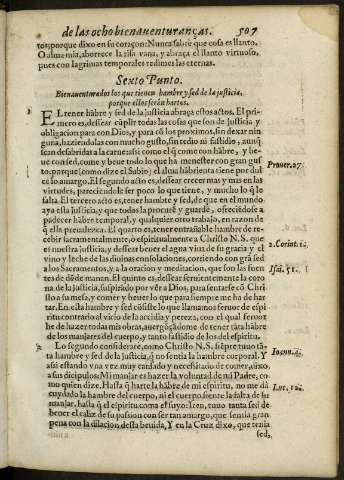 de las ocho bienauenturanças. 507
tos, porque dixo en su coraçon: Nunca sabrè que cosa es llanto.
O alma mia, aborrece la risa vana, y abraça el llanto virtuoso,
pues con lagrimas temporales redimes las eternas.
Sexto Punto.
Bienauenturados los que tienen hambre y sed de la justicia,
porque ellos serán hartos.
EL tener hãbre y sed de la justicia abraça estos actos. El pri-
mero es, dessear cũplir todas las cosas que son de justicia y
obligacion para con Dios, y para cõ los proximos, sin dexar nin
guna, haziendolas con mucho gusto, sin tedio ni fastidio, aunq̃
sean desabridas a la carne: assi como el q̃ come con hãbre, y be-
ue con sed, come y beue todo lo que ha menester con gran gus
to, porque (como dize el Sabio) el alma hãbrienta tiene por dul
ce lo amargo. El segundo acto es, dessear crecer mas y mas en las
virtudes, pareciendole ser poco lo que tiene, y mucho lo q̃ le
falta. El tercero acto es, tener hambre y sed, de que en el mundo
aya esta justicia, y que todos la procurẽ y guardẽ, ofreciẽdose a
padecer hãbre temporal, y qualquier otro trabajo, en razon de
q̃ ella preualezca. El quarto es, tener entrañable hambre de re-
cebir sacramentalmente, ò espiritualmente a Christo N. S. que
es nuestra justicia, y dessear beuer el agua viua de su gracia y el
vino y leche de las diuinas consolaciones, corriendo con grã sed
a los Sacramentos, y a la oracion y meditacion, que son las fuen
tes de dõde manan. El quinto es, dessear feruientemente la coro
na de la justicia, suspirãdo por vèr a Dios, para sentarse cõ Chri-
sto a su mesa, y comer y beuer lo que para siempre me ha de har
tar. En esta hambre y sed cõsiste lo que llamamos feruor de espi
ritu contrario al vicio de la accidia y pereza, con el qual se han
de hazer todas mis obras, auergõçãdome de tener tãta hãbre
de los manjares del cuerpo, y tanto fastidio de los del espiritu.
Lo segundo considerarè, como Christo N. S. siẽpre tuuo tã-
ta hambre y sed de la justicia, q̃ no sentia la hambre corporal. Y
assi estando vna vez muy cansado y necessitado de comer, dixo,
a sus dicipulos: Mi manjar es hazer la voluntad de mi Padre, co-
mo quien dize. Hasta q̃ harte la hãbre de mi espiritu, no me dà
cuydado la hambre del cuerpo, ni el cuerpo siente la falta de su
manjar, hasta q̃ el espiritu coma el suyo: Iten, tuuo tanta sed de
beuer el caliz de su passion con ser tan amargo, que sentia gran
pena con la dilacion desta beuida, Y en la Cruz dixo, que tenia
sed,
Prouer. 27.
2. Corint. 1.
Isai. 55. 1.
Ioann. 4.
Luc. 12.